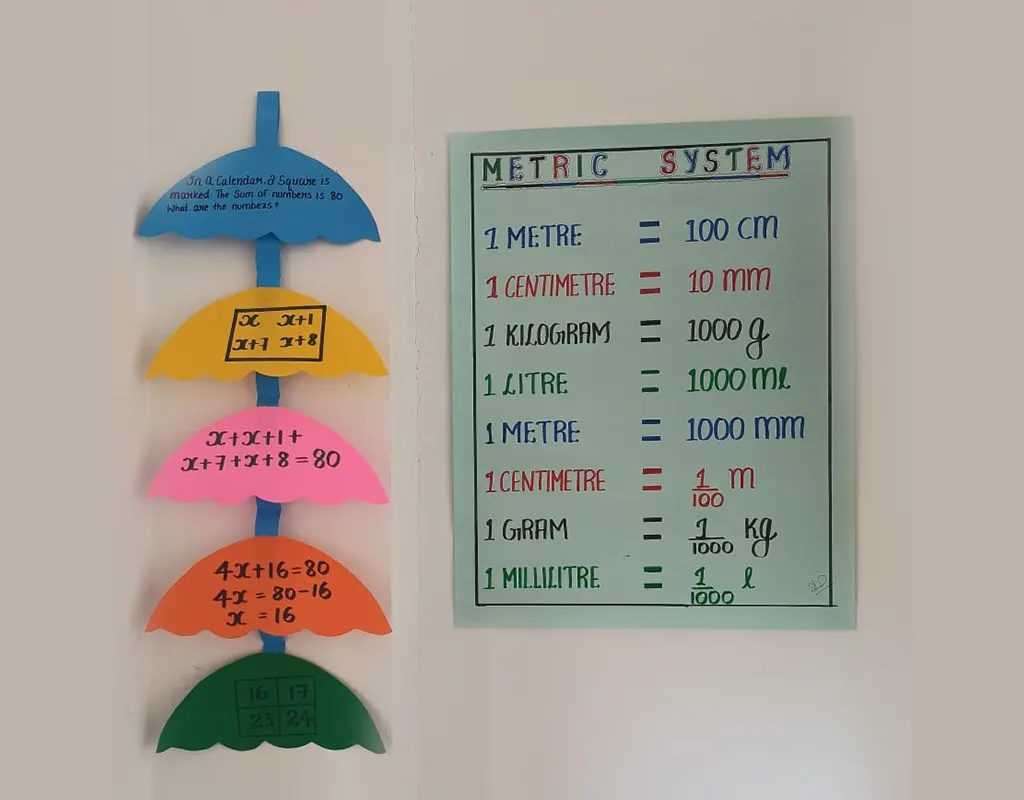 In a Calendar, a Square is
marked The Sum of numbers is 80
What are the numbers?
x x+1
x+7 x+8
x+x+1+
x+7+x+8=80
4x+16=80
4x = 80-16
x = 16
16 17
23 24
METRIC SYSTEM
1 METRE = 100 cm
1 CENTIMETRE = 10 mm
1 KILOGRAM = 1000 g
1 LITRE = 1000 ml
1 METRE = 1000 mm
1 CENTIMETRE = 1/100 m
1 GRAM = 1/1000 kg
1 MILLILITRE = 1/1000 l